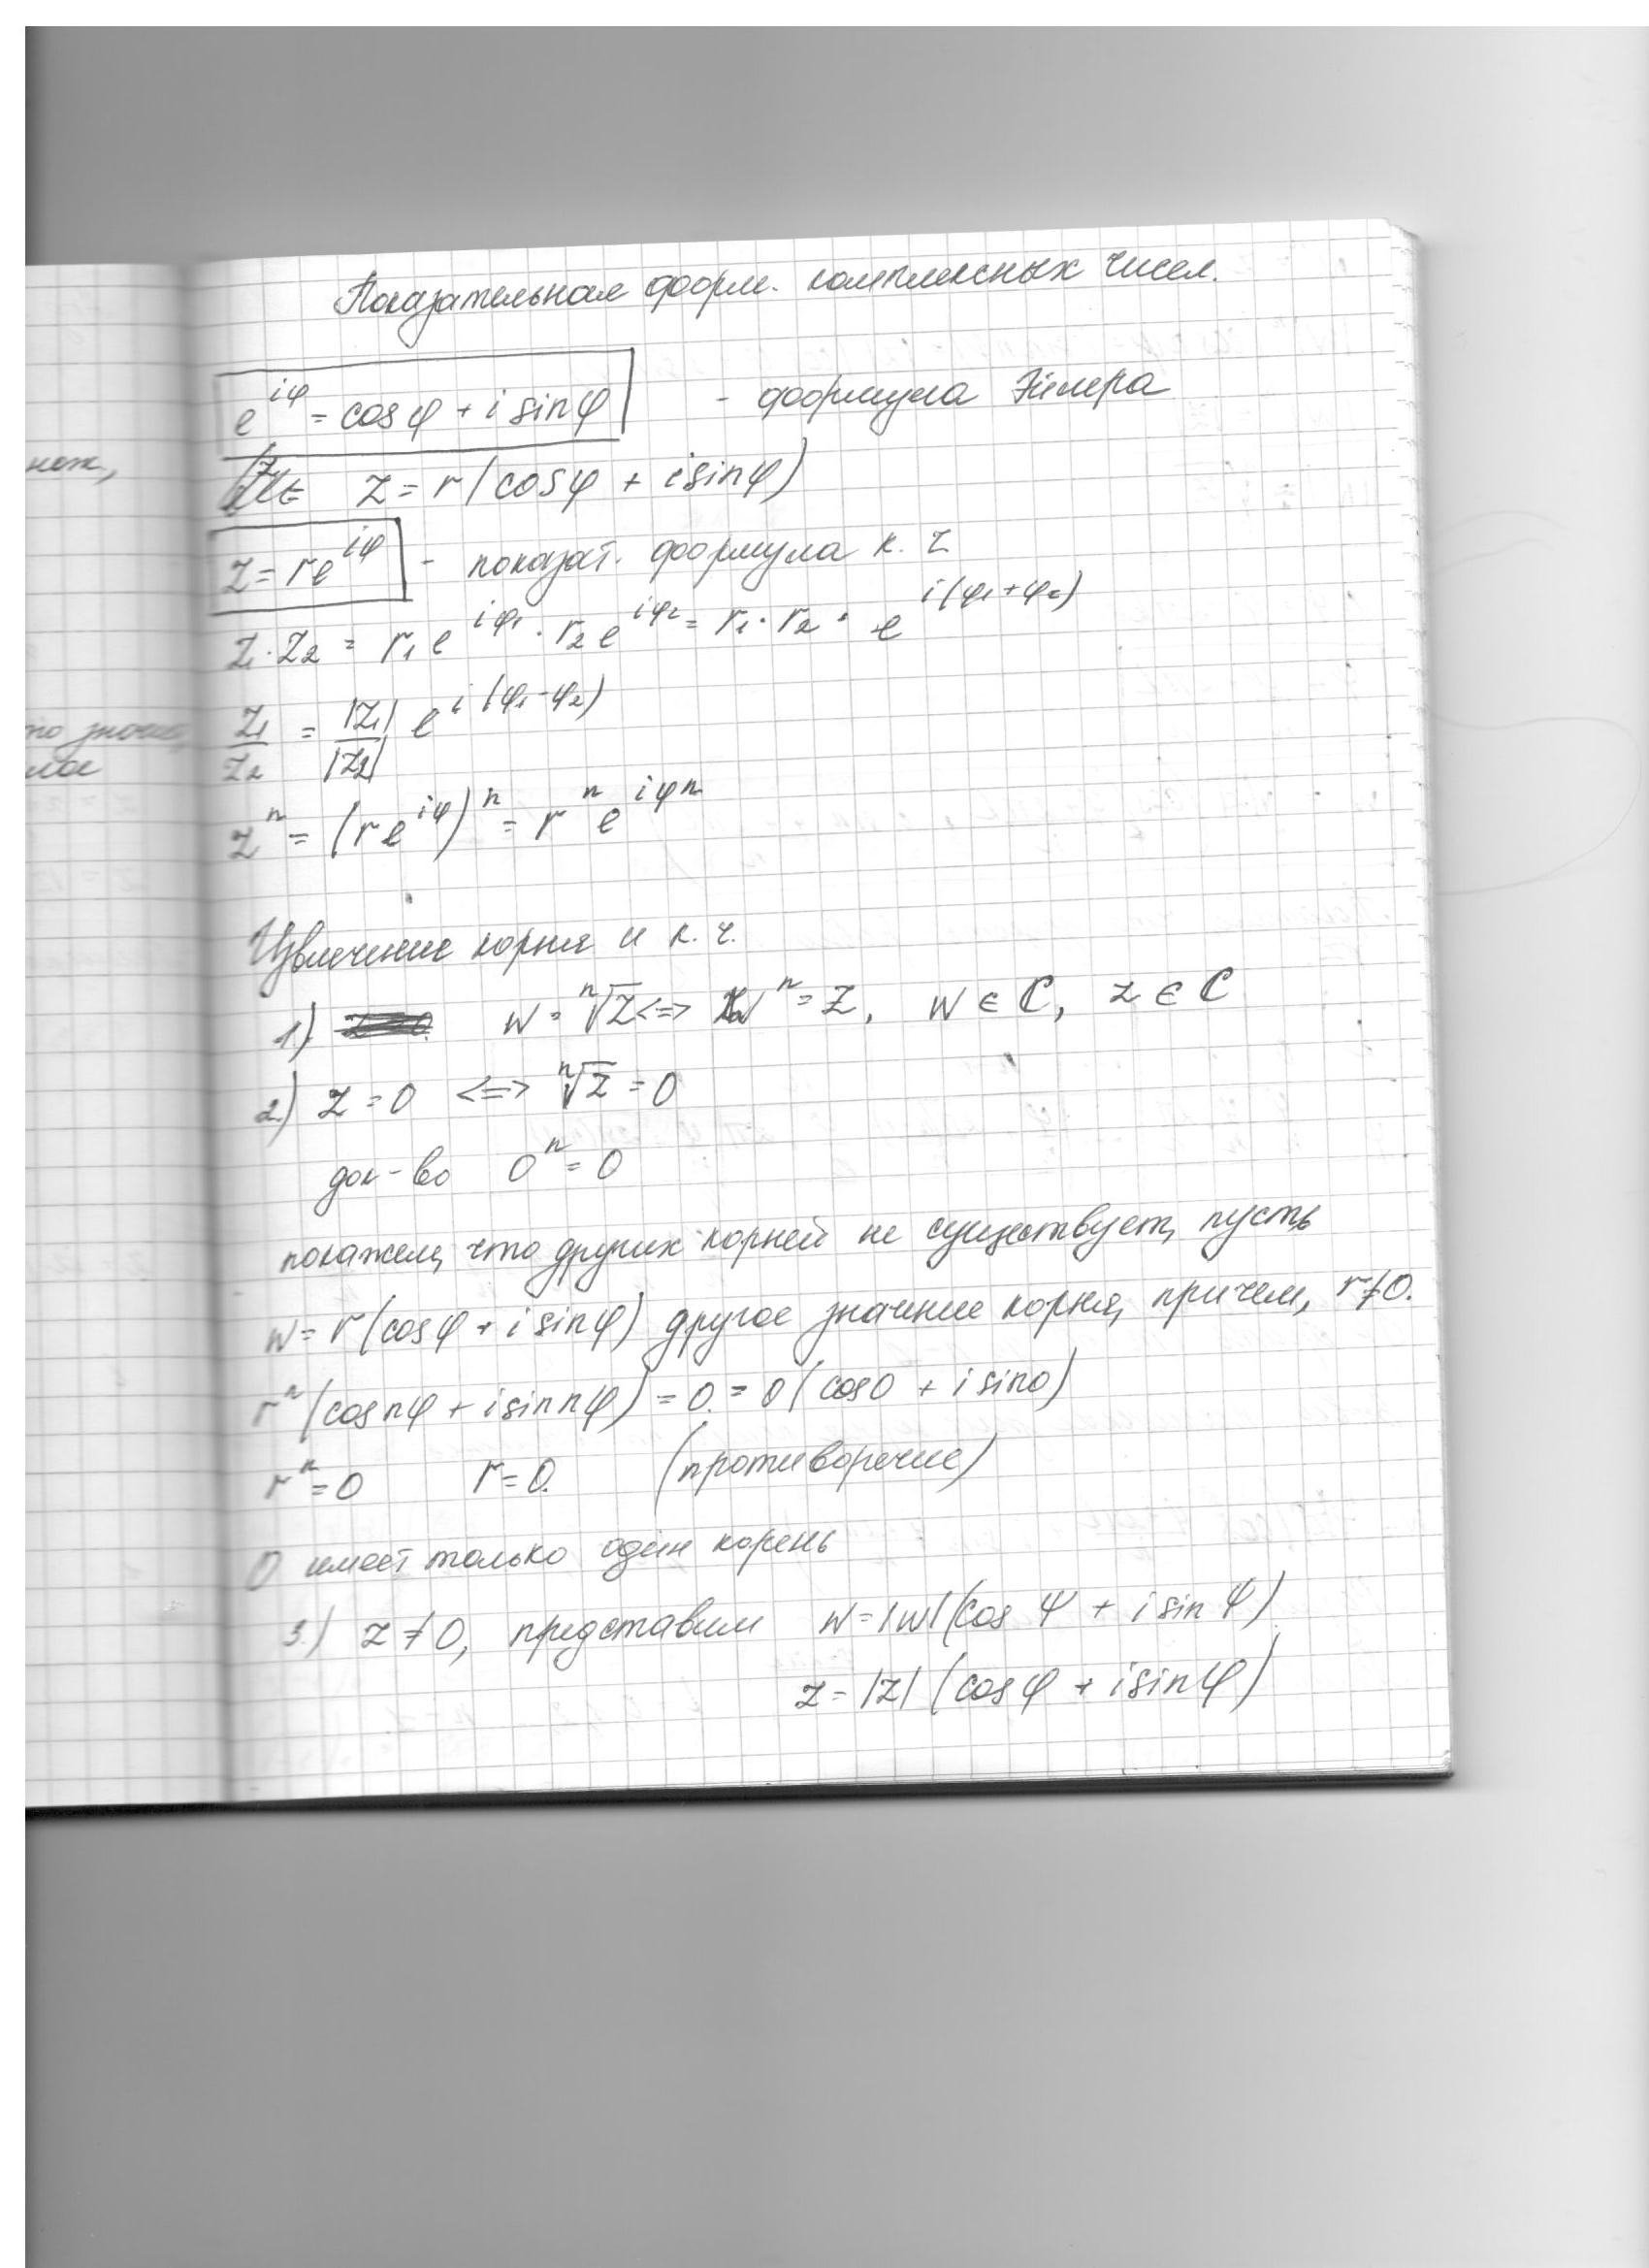 Показательная форм. комплексных чисел.
e^{iφ} = cosφ + i sinφ - формула Эйлера
z = r(cosφ + i sinφ)
z = re^{iφ} - показат. формула к. ч
z₁·z₂ = r₁e^{iφ₁}·r₂e^{iφ₂} = r₁·r₂·e^{i(φ₁+φ₂)}
z₁/z₂ = |z₁|/|z₂| e^{i(φ₁-φ₂)}
zⁿ = (re^{iφ})ⁿ = rⁿe^{iφn}
Извлечение корня и к. ч.
1.) w = ⁿ√z <=> wⁿ = z, w ∈ ℂ, z ∈ ℂ
2.) z = 0 <=> ⁿ√z = 0
док-во 0ⁿ = 0
покажем, что других корней не существует, пусть
w = r(cosφ + i sinφ) другое значение корня, причем, r≠0.
rⁿ(cos nφ + i sin nφ) = 0. = 0(cos0 + i sin0)
rⁿ = 0 r = 0. (противоречие)
0 имеет только один корень
3.) z ≠ 0, представим w = |w|(cos ψ + i sin ψ)
z = |z|(cos φ + i sin φ)
нож,